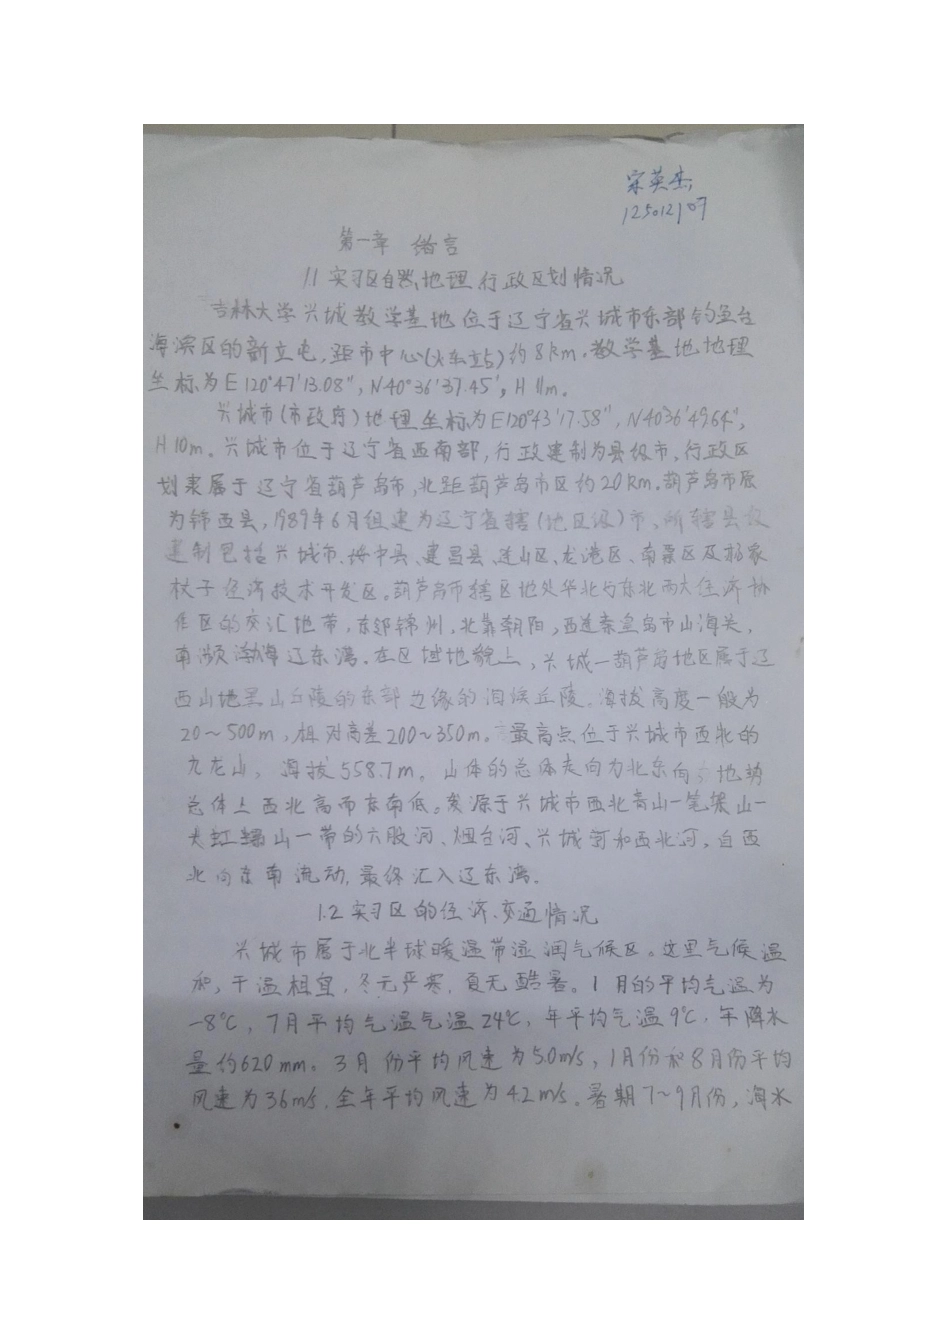 宋英杰
125012107
第一章 绪言
1.1 实习区自然地理、行政区划情况
吉林大学兴城教学基地位于辽宁省兴城市东部钓鱼台
海滨区的新立屯,距市中心(火车站)约8km。教学基地地理
坐标为E120°47'13.08",N40°36'37.45",H 11m。
兴城市(市政府)地理坐标为E120°43'17.58",N40°36'49.64",
H10m。兴城市位于辽宁省西南部,行政建制为县级市,行政区
划隶属于辽宁省葫芦岛市,北距葫芦岛市区约20km。葫芦岛市原
为锦西县,1989年6月组建为辽宁省辖(地区级)市、所辖县级
建制包括兴城市、绥中县、建昌县、连山区、龙港区、南票区及杨家
杖子经济技术开发区。葫芦岛市辖区地处华北与东北两大经济协
作区的交汇地带,东邻锦州,北靠朝阳,西连秦皇岛市山海关,
南濒渤海辽东湾。在区域地貌上,兴城—葫芦岛地区属于辽
西山地黑山丘陵的东部边缘的沿候丘陵。海拔高度一般为
20~500m,相对高差200~350m。最高点位于兴城市西北的
九龙山,海拔558.7m。山体的总体走向为北东向,地势
总体上西北高而东南低。发源于兴城市西北青山—笔架山—
大虹螺山一带的六股河、烟台河、兴城河和西北河,自西
北向东南流动,最终汇入辽东湾。
1.2 实习区的经济、交通情况
兴城市属于北半球暖温带湿润气候区。这里气候温
和,干温相宜,冬无严寒,夏无酷暑。1月的平均气温为
-8℃,7月平均气温气温24℃,年平均气温9℃,年降水
量约620mm。3月份平均风速为5.0m/s,1月份和8月份平均
风速为3.6m/s,全年平均风速为4.2m/s。暑期7~9月份,海水